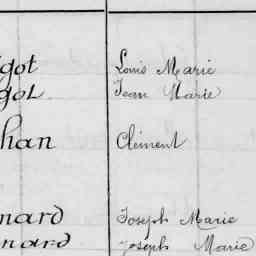 got Louis Marie
got Jean Marie
han Clément
nard Joseph Marie
nard Joseph Marie